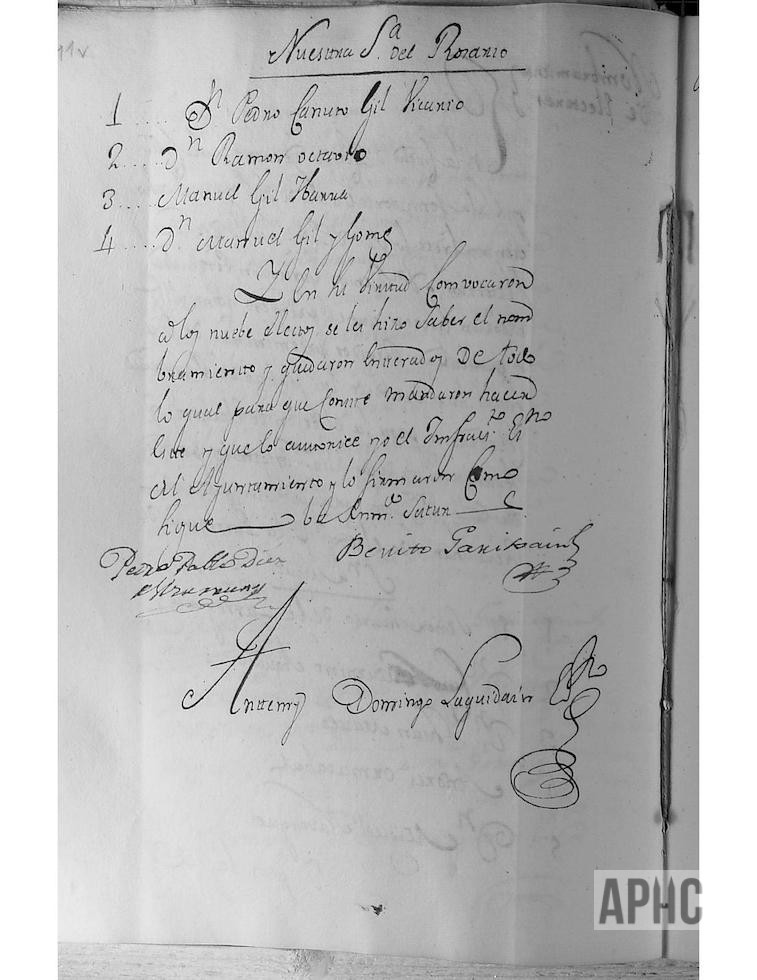 11v
Nuestra S.ª del Rosario
1 .... Dn Pedro Canuto Gil Vicario
2 .... Dn Ramon Octavio
3 .... Manuel Gil
4 .... Dn Manuel Gil y Gomez
Y en su Virtud Comvocaron
a los nuebe electos se les hizo Saber el nom
bramiento y quedaron Enterados De todo
lo qual para que Conste mandaron hacer
este y que lo autorice yo el Infrasto. Esno
del Ayuntamiento y lo firmaron Como
sigue
Pedro Pablo Diez
Benito
Antemy Domingo Laguidain
APHC